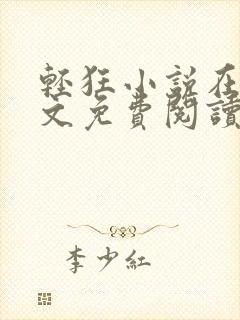 輕狂小說在
文免費閱讀
李少紅